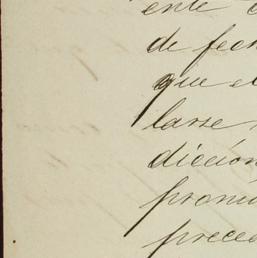 ente
de fech
que el
larse
dicción
pronu
preced